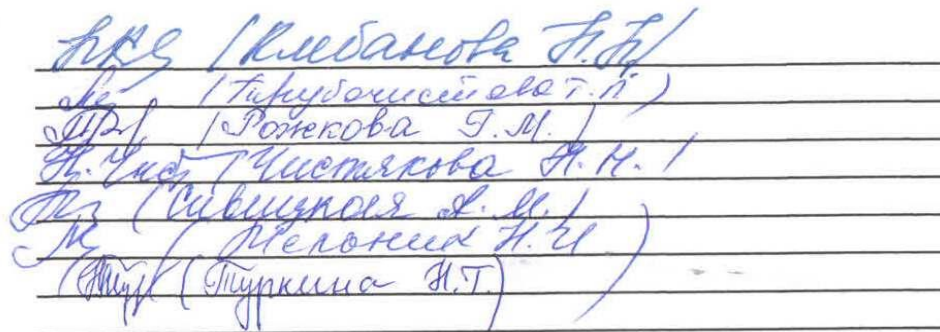 (Клебанова Н.Н)
(Трубочистова Т.П)
(Рожкова Г.М.)
Н.Чист (Чистякова Н.Н.)
(Сивицкая А.М.)
(Мельник Н.И)
(Туркина Н.Т.)